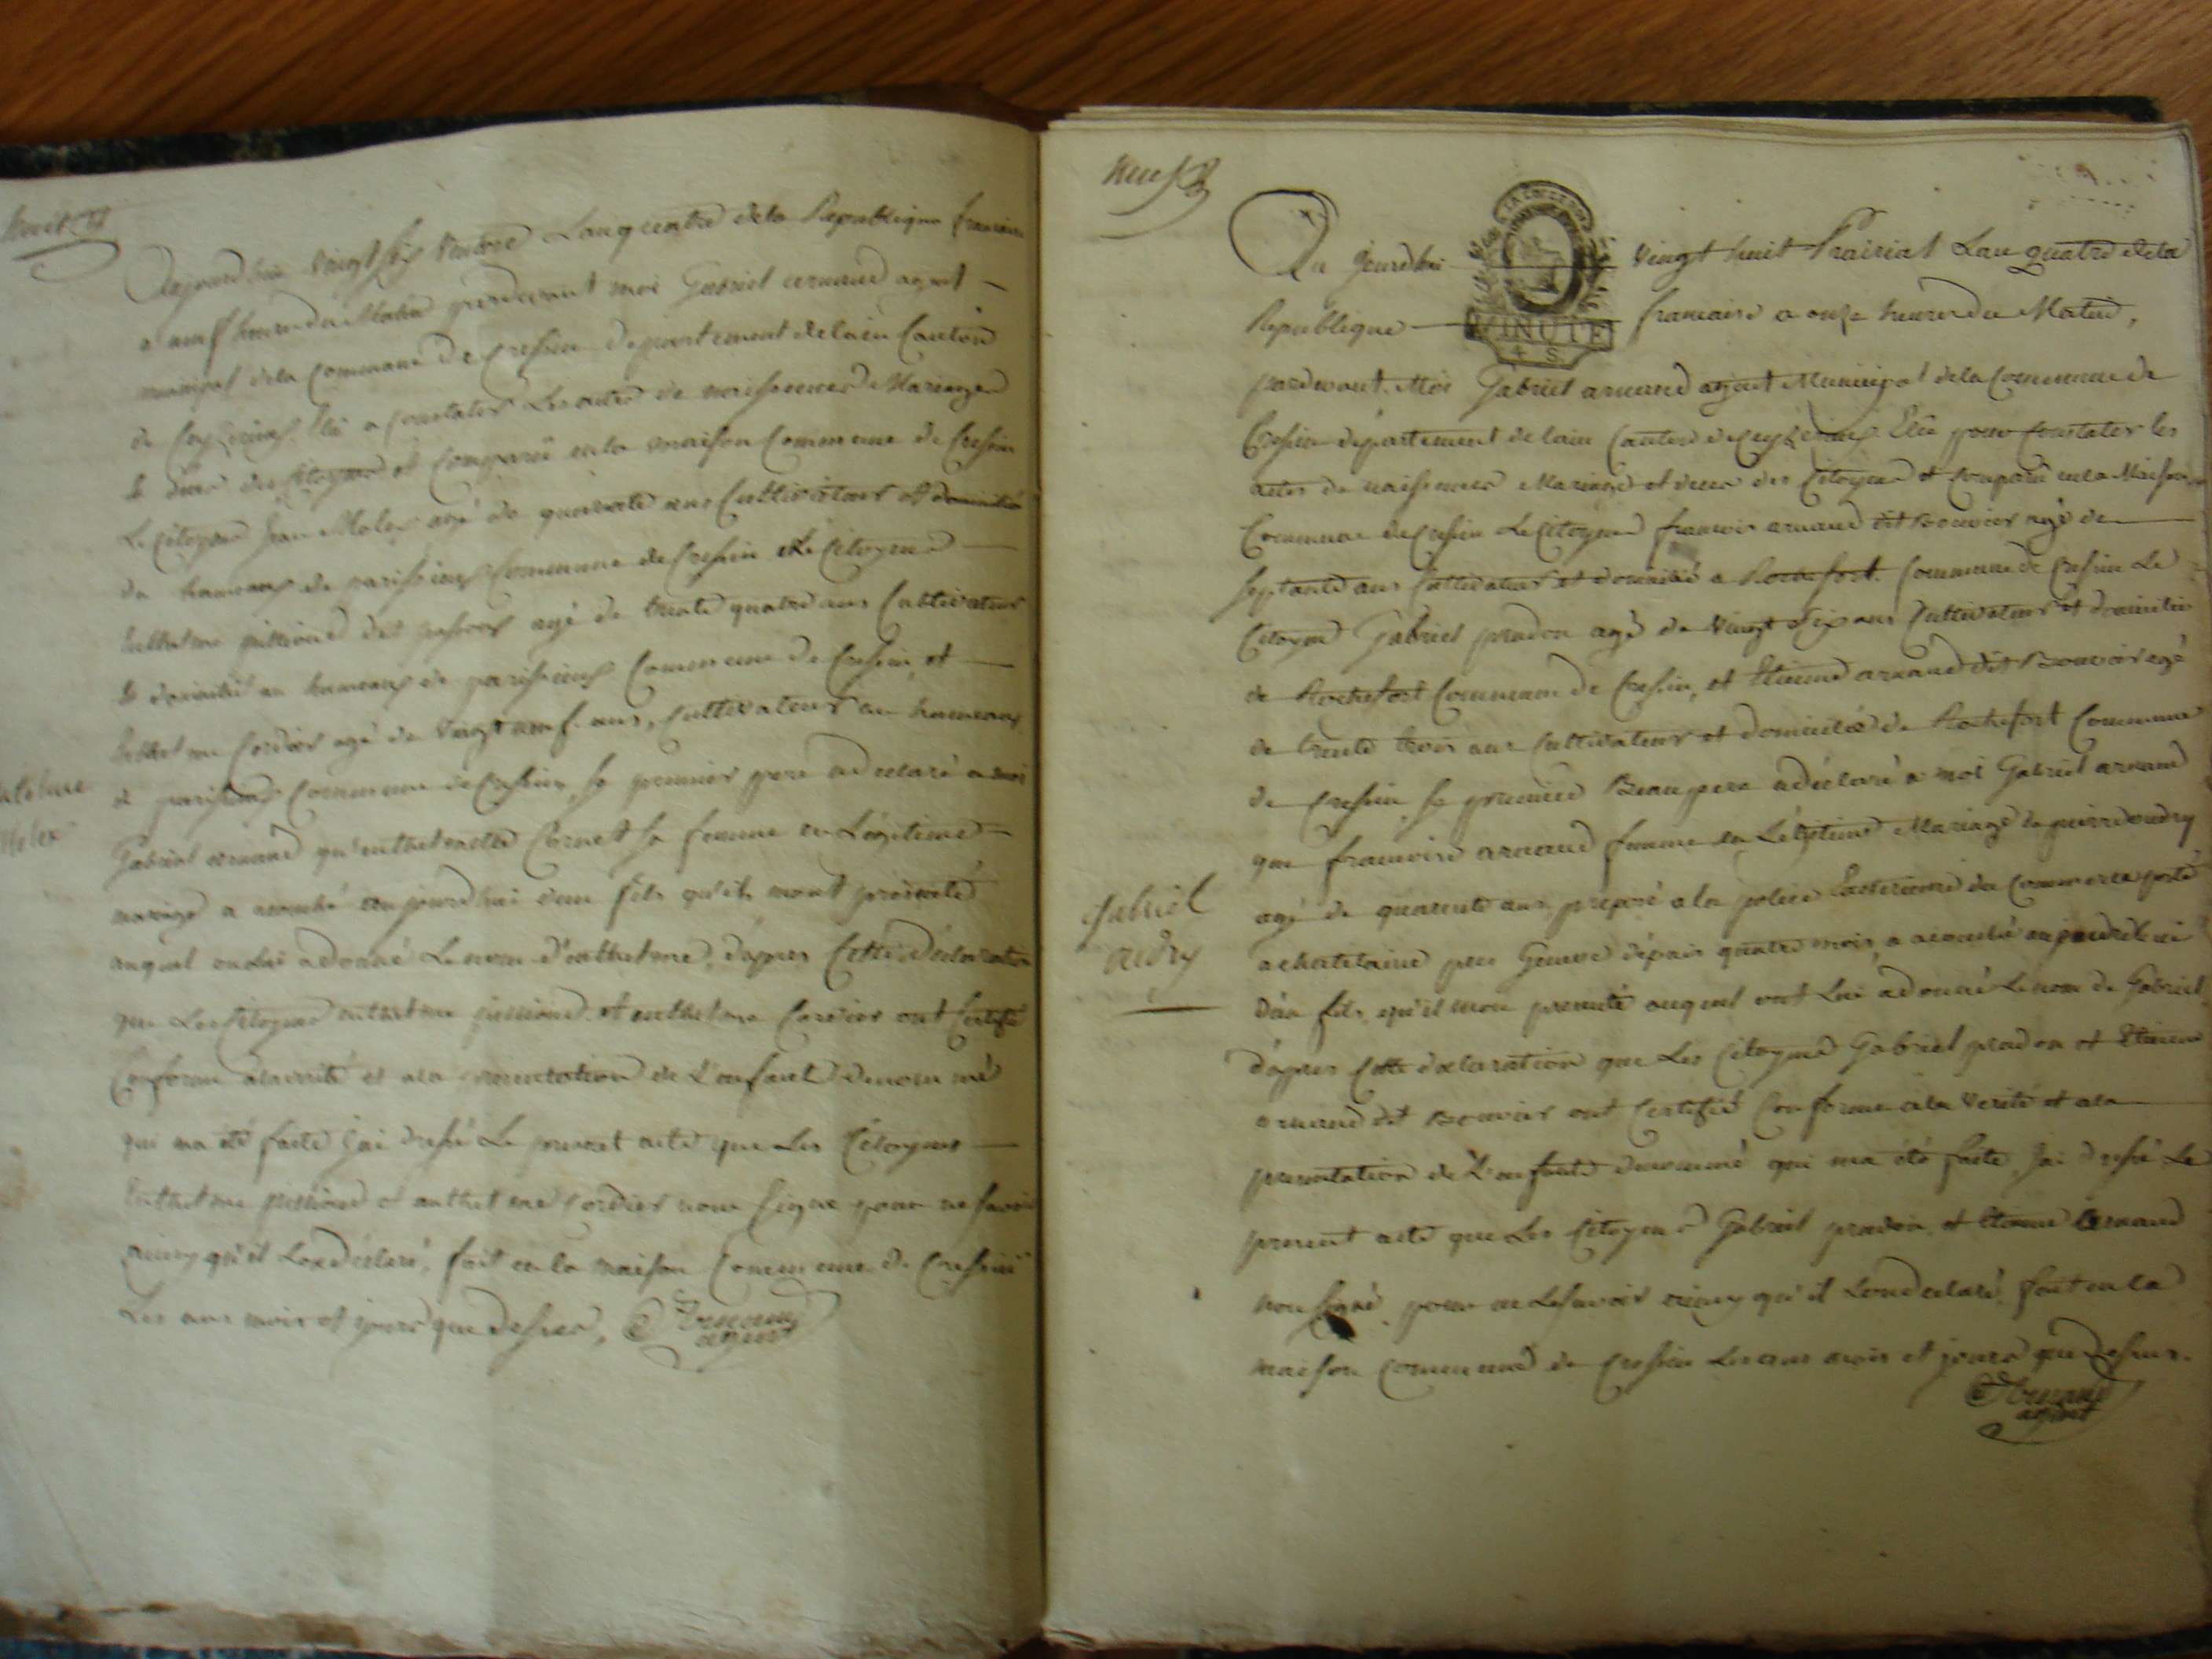 huit
Aujourd'hui vingt six Lan quatre dela Republique francaise
a neuf heures du Matin pardevant moi Gabriel arnaud agent
municipal dela Commune de Cressieu departement de lain Canton
de Ceyzerieux Elu a Constater Les actes de naissances Mariages
et deces des Citoyens et Comparu en la maison Commune de Cressieu
Le Citoyen Jean Molex agé de quarante ans Cultivateur et domicilié
du hameaux de parissieux Commune de Cressieu et Le Citoyen
anthelme dit agé de trente quatre ans Cultivateur
et domicilié au hameaux de parissieux Commune de Cressieu, et
anthelme Cordier agé de vingt neuf ans, Cultivateur au hameaux
de parissieux Commune de Cressieu, Le premier pere a declaré a moi
Gabriel arnaud qu'anthelmette Cornet sa femme en Légitime
mariage a acouché aujourdhui d'un fils qu'ils mont présenté
auquel on Lui a donné Le nom d'anthelme, d'apres Cette déclaration
que Les Citoyens anthelme et anthelme Cordier ont Certifié
Conforme a la verité et a la presentation de L'enfant denommé
qui ma été faite Jai dressé Le present acte que Les Citoyens
anthelme et anthelme Cordier nont signe pour ne savoir
ainsy qu'il Lon déclaré, fait en la maison Commune de Cressieu
Les ans mois et jours que dessus, Arnaud
agent
antelme
Molex
neuf
Au Jourdhui vingt huit Prairial Lan quatre dela
Republique francaise a onze heures du Matin,
MINUTE
4 S
pardevant Moi Gabriel arnaud agent Municipal dela Commune de
Cressieu département de lain Canton de Ceyzerieux Elu pour Constater les
actes de naissances Mariage et deces des Citoyens et Comparu en la Maison
Commune de Cressieu Le Citoyen francois arnaud dit Bouvier agé de
septante ans Cultivateur et domicilié a Rochefort Commune de Cressieu Le
Citoyen Gabriel pradon agé de vingt six ans Cultivateur et domicilié
de Rochefort Commune de Cressieu, et Etienne arnaud dit Bouvier agé
de trente trois ans Cultivateur et domicilié de Rochefort Commune
de Cressieu, Le premier Beaupere a déclaré a moi Gabriel arnaud
que francoise arnaud femme en Légitime Mariage de pierre audry
agé de quarante ans preposé a la police Exterieure du Commerce posté
a chatelaine pres Geneve dépuis quatre mois, a acouché aujourdhui
d'un fils, qu'il mon presenté auquel ont Lui a donné Le nom de Gabriel
d'apres Cette declaration que Les Citoyens Gabriel pradon et Etienne
arnaud dit Bouvier ont Certifié Conforme a la verité et a la
presentation de L'enfant denommé qui ma été faite Jai dressé Le
present acte que Les Citoyens Gabriel pradon et Etienne arnaud
non signé pour ne Le savoir ainsy qu'il Lon declaré fait en la
maison Commune de Cressieu Les ans mois et jours que dessus.
Arnaud
agent
Gabriel
audry